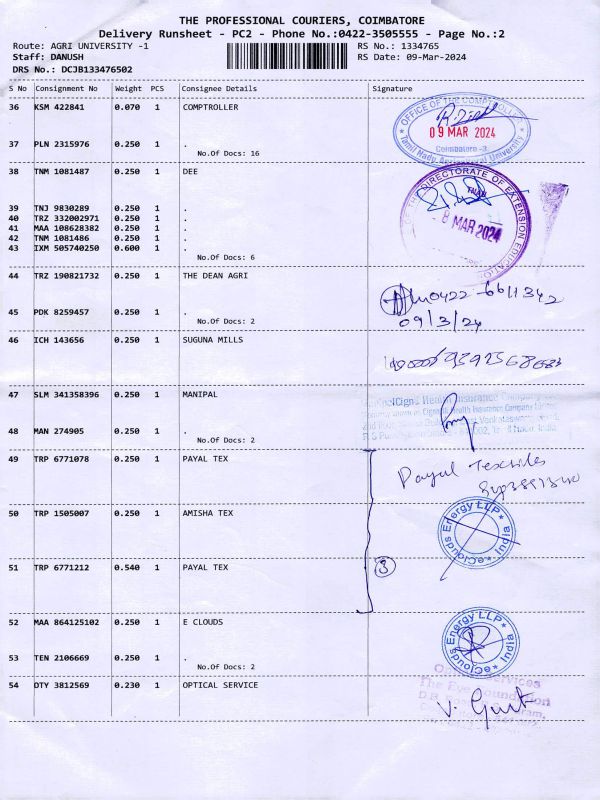 THE PROFESSIONAL COURIERS, COIMBATORE
Delivery Runsheet - PC2 - Phone No.:0422-3505555 - Page No.:2
Route: AGRI UNIVERSITY -1 RS No.: 1334765
Staff: DANUSH RS Date: 09-Mar-2024
DRS No.: DCJB133476502
S No Consignment No Weight PCS Consignee Details Signature
36 KSM 422841 0.070 1 COMPTROLLER
OFFICE OF THE COMPTROLLER
09 MAR 2024
Coimbatore -3.
Tamil Nadu Agricultural University
37 PLN 2315976 0.250 1 .
No.Of Docs: 16
38 TNM 1081487 0.250 1 DEE
THE DIRECTORATE OF EXTENSION EDUCATION
8 MAR 2024
39 TNJ 9830289 0.250 1 .
40 TRZ 332002971 0.250 1 .
41 MAA 108628382 0.250 1 .
42 TNM 1081486 0.250 1 .
43 IXM 505740250 0.600 1 .
No.Of Docs: 6
44 TRZ 190821732 0.250 1 THE DEAN AGRI
0422-6611342
09/3/24
45 PDK 8259457 0.250 1 .
No.Of Docs: 2
46 ICH 143656 0.250 1 SUGUNA MILLS
47 SLM 341358396 0.250 1 MANIPAL
Health Insurance Company
Health Insurance Company Limited
48 MAN 274905 0.250 1 .
Tamil Nadu, India
No.Of Docs: 2
49 TRP 6771078 0.250 1 PAYAL TEX
Payal Textiles
50 TRP 1505007 0.250 1 AMISHA TEX
eClouds Energy LLP * India *
51 TRP 6771212 0.540 1 PAYAL TEX
3
52 MAA 864125102 0.250 1 E CLOUDS
eClouds Energy LLP * India *
53 TEN 2106669 0.250 1 .
No.Of Docs: 2
54 DTY 3812569 0.230 1 OPTICAL SERVICE
Services
The Eye Foundation